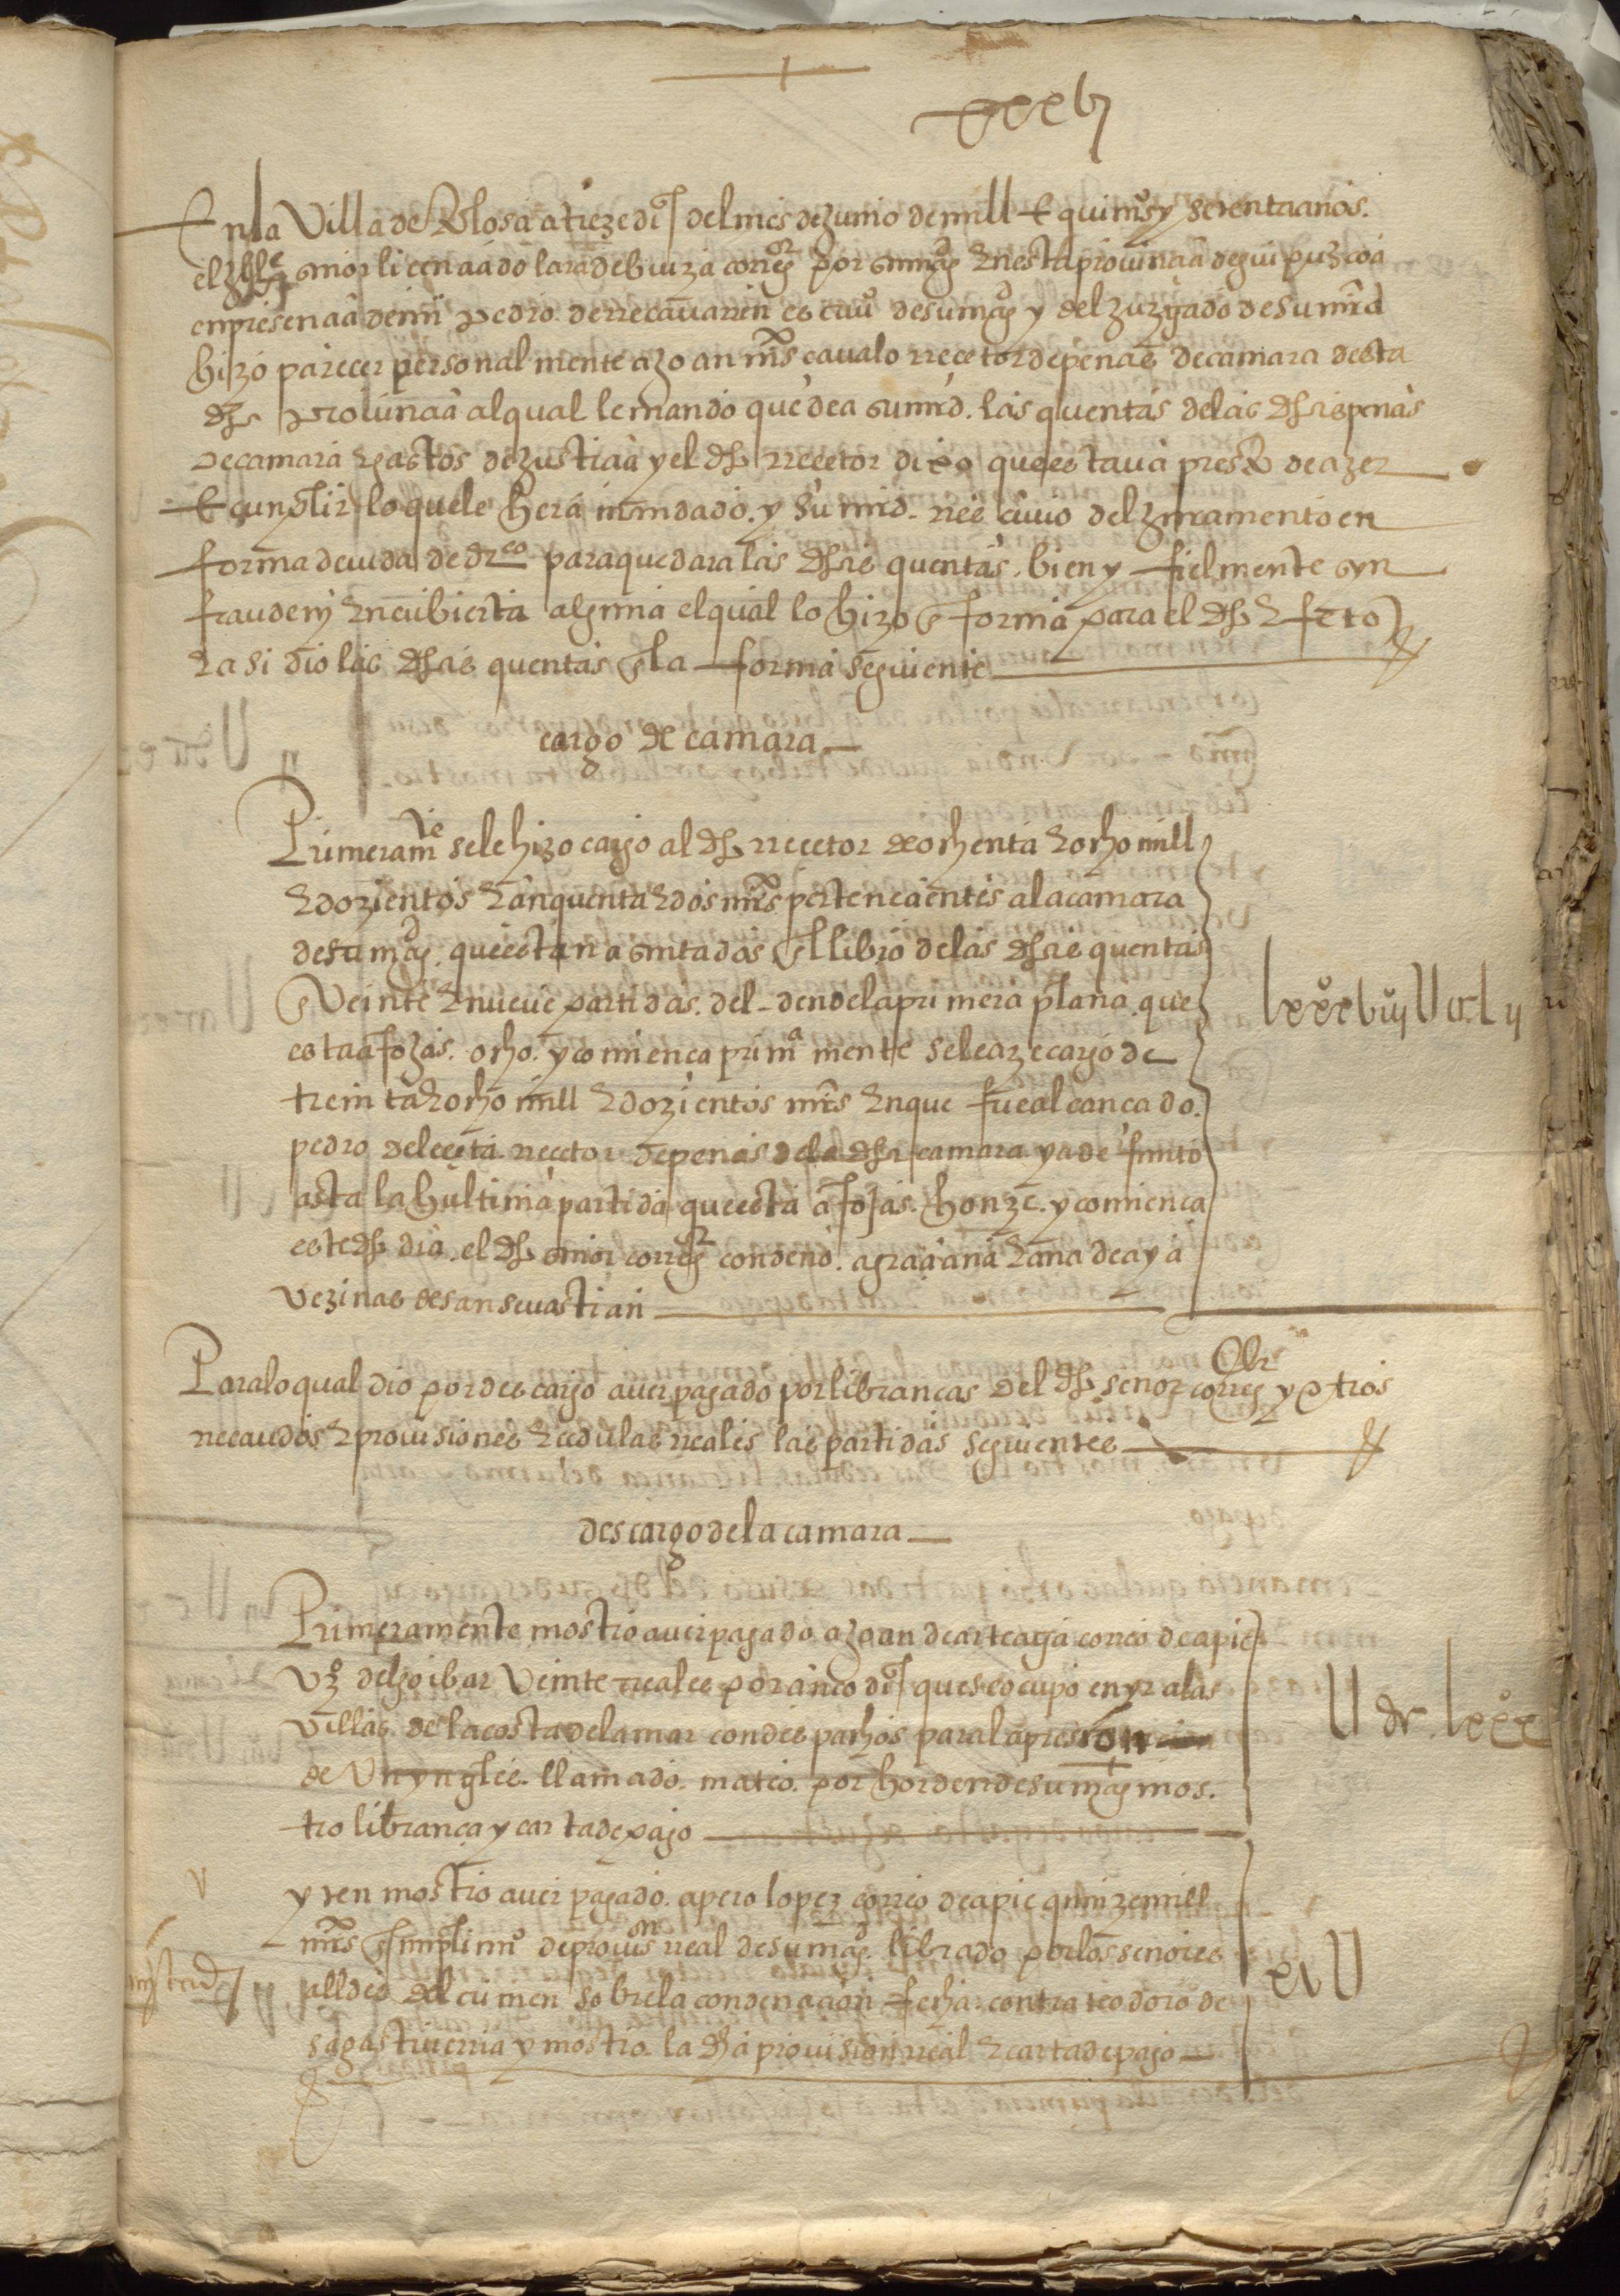 xxxvij
En la Villa de Tolosa a treze dias del mes de junio de mill E quinᵒs y setenta años.
el yllᵉ señor licenciado lara de buiza corregᵒʳ por su magᵈ En esta provincia de guipuzcoa
en presencia de mi pedro de rrecavarren escrivᵒ de su magᵈ y del juzgado de su mrd
hizo parecer personal mente a joan mrs cavalo rrecetor de penas de camara desta
dha provincia al qual le mando que de a su mrd. las quentas de las dhas penas
de camara E gastos de justicia y el dho rrecetor dixo que estava presto de azer
E cunplir lo que le hera mandado. y su mrd. rrecivio del juramento en
forma devida de drᵉᶜᵒ para que dara las dhas quentas. bien y fielmente syn
fraude ni Encubierta alguna el qual lo hizo en forma para el dho Efecto
E asi dio las dhas quentas en la forma seguiente
cargo de camara
Primeramᵗᵉ se le hizo cargo al dho rrecetor de ochenta E ocho mill
E dozientos E cinquenta E dos mrs pertenecientes a la camara
de su magᵈ. que estan asentados en el libro de las dhas quentas
en Veinte E nueve partidas. del dende la primera plana que
esta a fojas. ocho. y comiença primᵃ mente se le aze cargo de
treinta E ocho mill E dozientos mrs En que fue alcançado.
pedro de leceta rrecetor de penas de la dha camara ya defunto
asta la hultima partida que esta a fojas. honze. y comiença
este dho dia. el dho señor corregᵒʳ condeno. a graciana E ana de aya
Vezinas de san sevastian
lxxxviijU ccl ij
Para lo qual dio por descargo aver pagado por libranças del dho señor corregᵒʳ y otros
rrecaudos E provisiones E cedulas rreales las partidas seguientes
descargo de la camara
Primeramente mostro aver pagado a joan de arteaga correo de a pie
vzᵒ delgoibar Veinte rreales por cinco dias que se ocupo en yr a las
villas de la costa de la mar con despachos para la presion
de Un yngles. llamado. mateo. por horden de su magᵈ mos.
tro librança y carta de pago
U dc. lxxx
yten mostro aver pagado. a pero lopez correo de a pie quinze mill
mrs en cunplimᵒ de provisᵒⁿ rreal de su magᵈ. librado por los señores
alldes del crimen sobre la condenacion fecha. contra teodoro de
sagastiverria y mostro la dha provision rreal E carta de pago
xvU